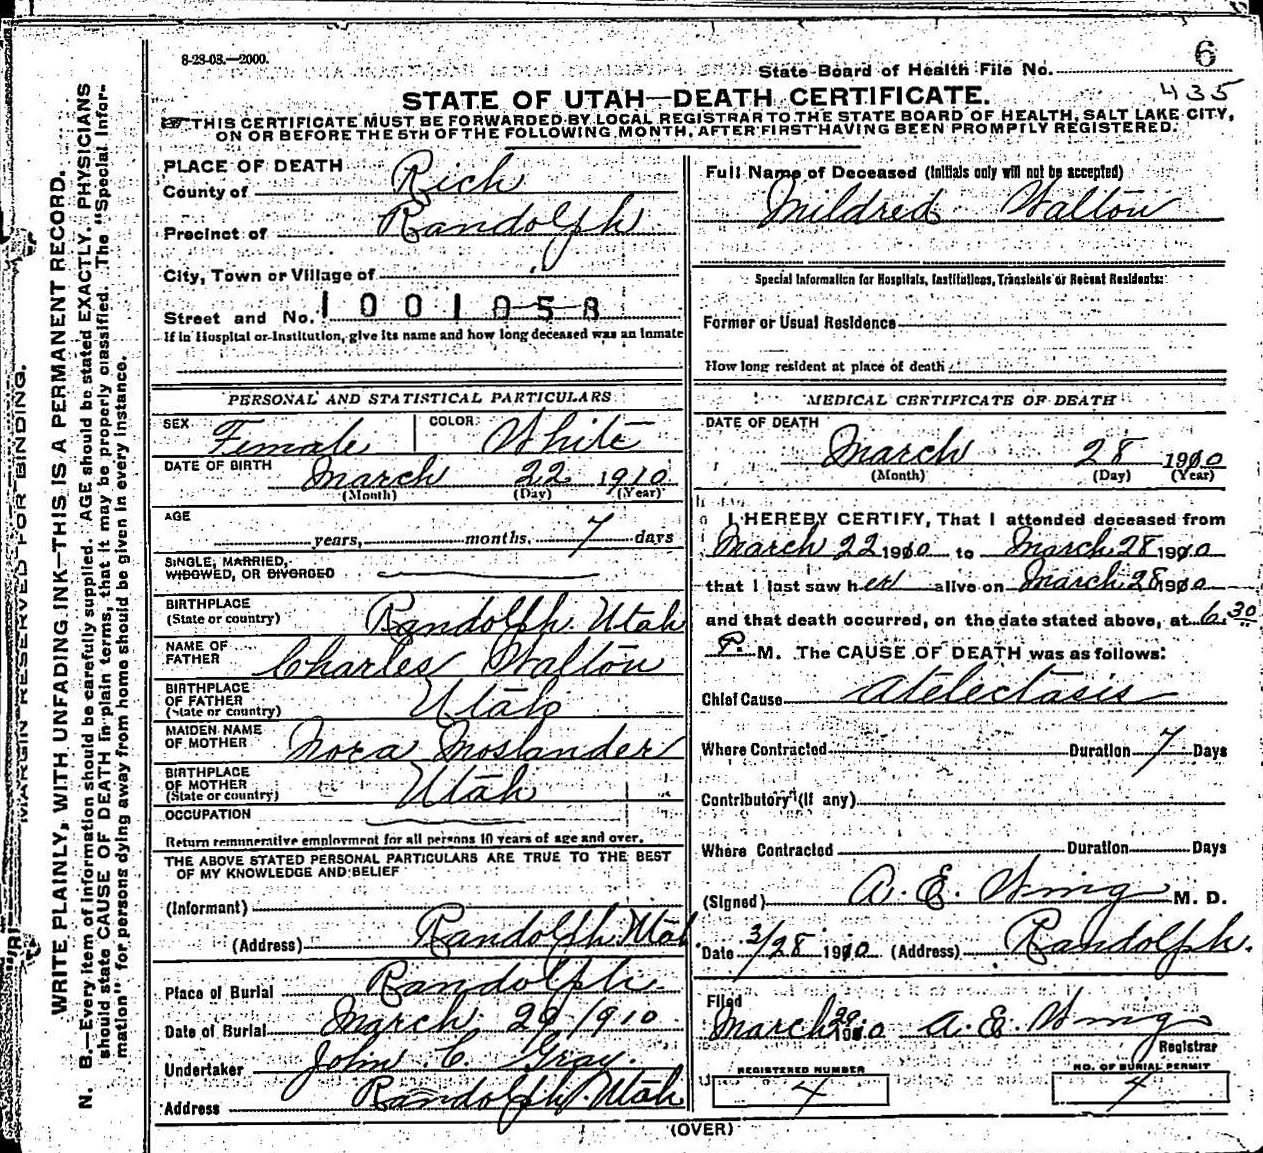 8-23-03.—2000.
6
State Board of Health File No.
435
STATE OF UTAH—DEATH CERTIFICATE.
THIS CERTIFICATE MUST BE FORWARDED BY LOCAL REGISTRAR TO THE STATE BOARD OF HEALTH, SALT LAKE CITY,
ON OR BEFORE THE 5TH OF THE FOLLOWING MONTH, AFTER FIRST HAVING BEEN PROMPTLY REGISTERED.
MARGIN RESERVED FOR BINDING.
WRITE PLAINLY, WITH UNFADING INK—THIS IS A PERMANENT RECORD.
N. B.—Every item of information should be carefully supplied. AGE should be stated EXACTLY. PHYSICIANS
should state CAUSE OF DEATH in plain terms, that it may be properly classified. The "Special Infor-
mation" for persons dying away from home should be given in every instance.
PLACE OF DEATH
County of Rich
Precinct of Randolph
City, Town or Village of
Street and No. 1001058
If in Hospital or Institution, give its name and how long deceased was an inmate
PERSONAL AND STATISTICAL PARTICULARS
SEX Female COLOR White
DATE OF BIRTH March 22 1910
(Month) (Day) (Year)
AGE
years, months, 7 days
SINGLE, MARRIED,
WIDOWED, OR DIVORCED
BIRTHPLACE
(State or country) Randolph Utah
NAME OF
FATHER Charles Walton
BIRTHPLACE
OF FATHER
(State or country) Utah
MAIDEN NAME
OF MOTHER Nora Moslander
BIRTHPLACE
OF MOTHER
(State or country) Utah
OCCUPATION
Return remunerative employment for all persons 10 years of age and over.
THE ABOVE STATED PERSONAL PARTICULARS ARE TRUE TO THE BEST
OF MY KNOWLEDGE AND BELIEF
(Informant)
(Address) Randolph Utah
Place of Burial Randolph
Date of Burial March 29 1910
Undertaker John C. Gray.
Address Randolph. Utah
Full Name of Deceased (Initials only will not be accepted)
Mildred Walton
Special Information for Hospitals, Institutions, Transients or Recent Residents:
Former or Usual Residence
How long resident at place of death
MEDICAL CERTIFICATE OF DEATH
DATE OF DEATH
March 28 1910
(Month) (Day) (Year)
I HEREBY CERTIFY, That I attended deceased from
March 22 1910 to March 28 1910
that I last saw her alive on March 28 1910
and that death occurred, on the date stated above, at 6.30
P. M. The CAUSE OF DEATH was as follows:
Chief Cause Atelectasis
Where Contracted Duration 7 Days
Contributory (if any)
Where Contracted Duration Days
(Signed) A. E. Wing M. D.
Date 3/28 1910 (Address) Randolph.
Filed
March 29 1910 A. E. Wing
Registrar
REGISTERED NUMBER
4
NO. OF BURIAL PERMIT
4
(OVER)